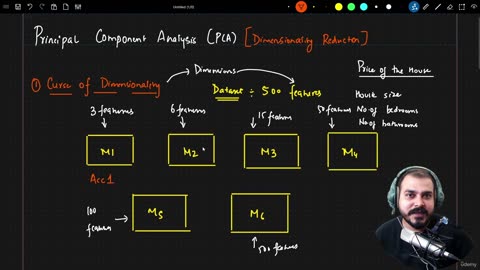 Principal Component Analysis (PCA) [Dimensionality Reduction]
① Curse of Dimensionality
Dimensions
Dataset ÷ 500 features
Price of the House
House size
No. of bedrooms
No of bathrooms
3 features
6 features
15 features
50 features
M1
M2
M3
M4
Acc 1
100 features
M5
M6
500 features
Udemy